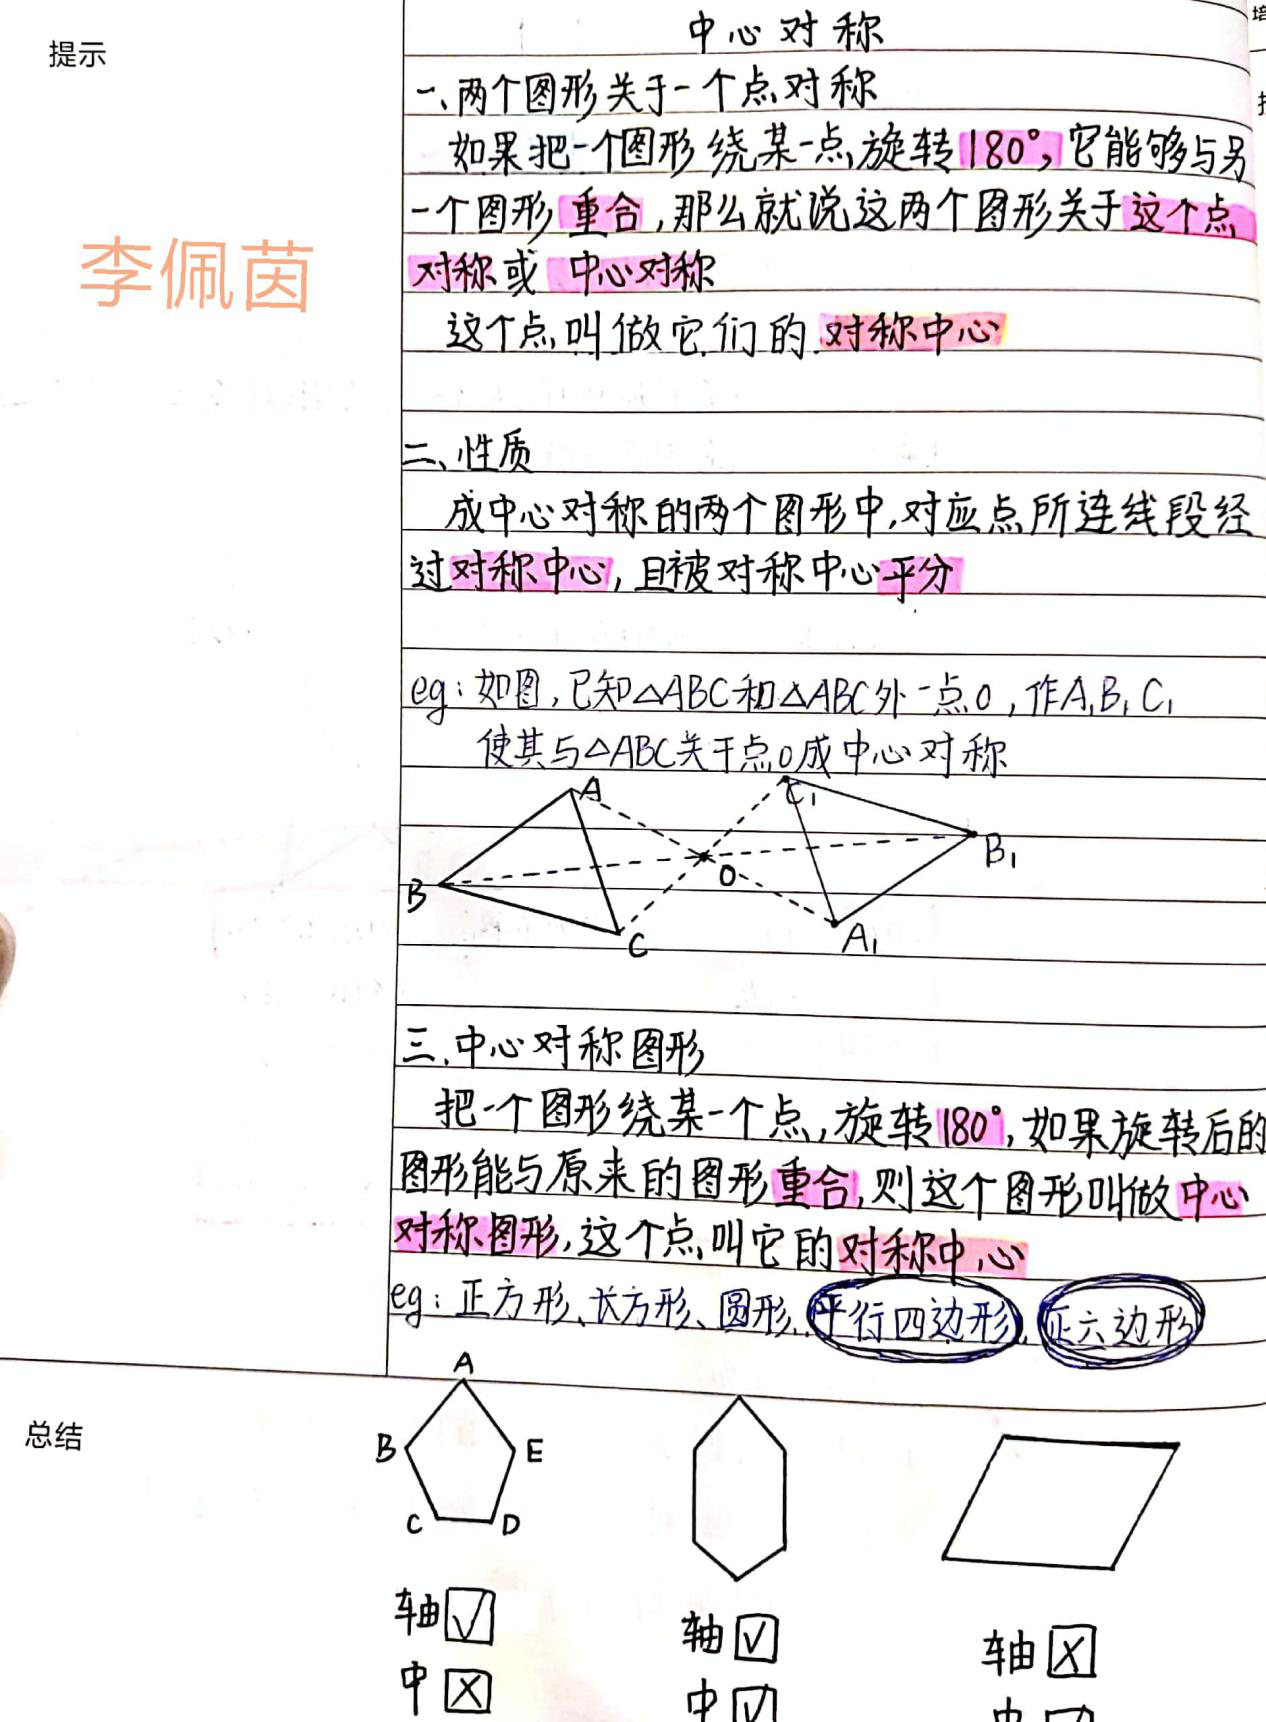 提示
李佩茵
中心对称
一、两个图形关于一个点对称
如果把一个图形绕某一点旋转180°,它能够与另
一个图形重合,那么就说这两个图形关于这个点
对称或中心对称
这个点叫做它们的对称中心
二、性质
成中心对称的两个图形中,对应点所连线段经
过对称中心,且被对称中心平分
eg:如图,已知△ABC和△ABC外一点O,作A₁B₁C₁
使其与△ABC关于点O成中心对称
A
C₁
B₁
O
B
C
A₁
三.中心对称图形
把一个图形绕某一个点,旋转180°,如果旋转后的
图形能与原来的图形重合,则这个图形叫做中心
对称图形,这个点叫它的对称中心
eg:正方形、长方形、圆形、平行四边形、正六边形
总结
A
B E
C D
轴☑ 轴☑ 轴☒
中☒ 中☑